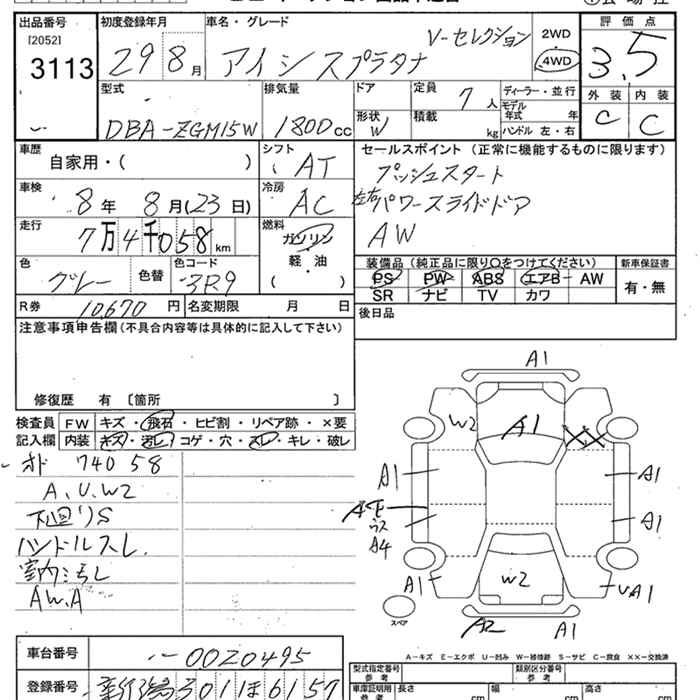 出品番号
[2052]
3113
初度登録年月
29 8月
車名・グレード
アイシスプラタナ
V-セレクション
2WD
4WD
評価点
3.5
外装 内装
C C
型式
DBA-ZGM15W
排気量
1800cc
ドア
形状
W
定員
7人
積載
kg
ディーラー・並行
モデル
年式 年
ハンドル 左・右
車歴
自家用・( )
シフト
AT
セールスポイント(正常に機能するものに限ります)
プッシュスタート
左右パワースライドドア
AW
車検
8年 8月(23日)
冷房
AC
走行
7万4千058km
燃料
ガソリン
軽・油
( )
色
グレー
色替
色コード
3R9
装備品(純正品に限り○をつけてください)
PS PW ABS エアB AW
SR ナビ TV カワ
新車保証書
有・無
R券
10,670円
名変期限 月 日
後日品
注意事項申告欄(不具合内容等は具体的に記入して下さい)
修復歴 有 〔箇所 〕
検査員
記入欄
FW キズ・飛石・ヒビ割・リペア跡・×要
内装 キズ・汚レ・コゲ・穴・スレ・キレ・破レ
オド 74058
A、U、W2
下回りS
ハンドルスレ
室内汚レ
AW、A
A1
W2
A1
XX
A1
A1
A1
A4
A1
W2
UA1
A2
A1
スペア
A-キズ E-エクボ U-凹み W-補修跡 S-サビ C-腐食 ××-交換済
車台番号
0020495
登録番号
新潟301ほ6157
型式指定番号
参考
類別区分番号
参考
車庫証明用
参考
長さ cm
幅 cm
高さ cm